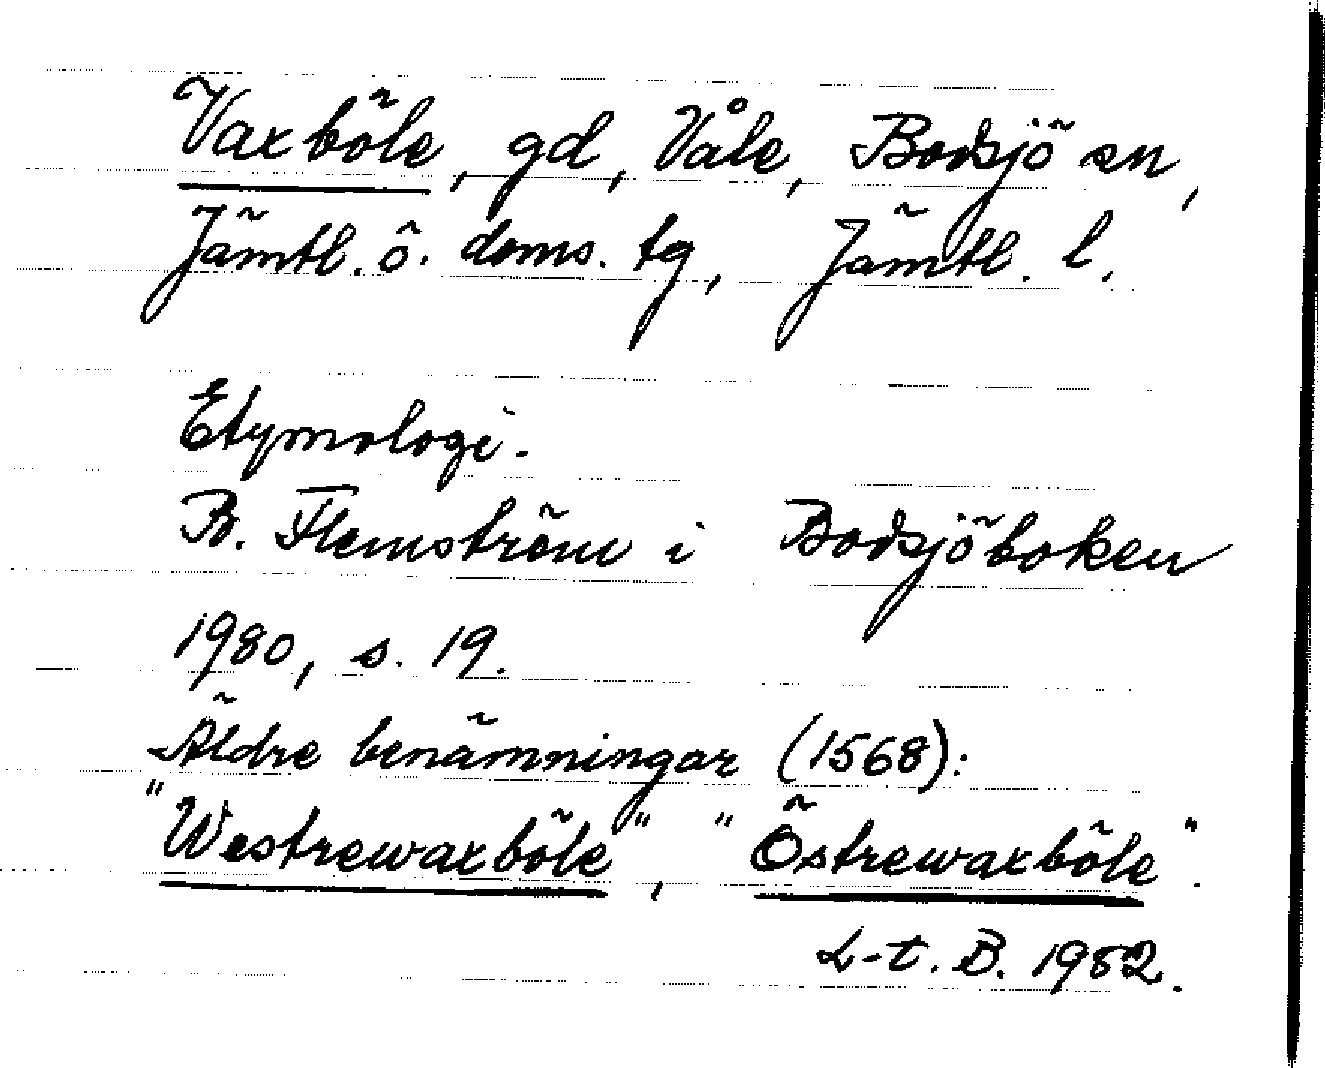 Vaxböle, gd, Våle, Bodsjö sn,
Jämtl. ö. doms. tg, Jämtl. l.
Etymologi.
B. Flemström i Bodsjöboken
1980, s. 19.
Äldre benämningar (1568):
"Westrewaxböle", "Östrewaxböle".
L-t. B. 1982.